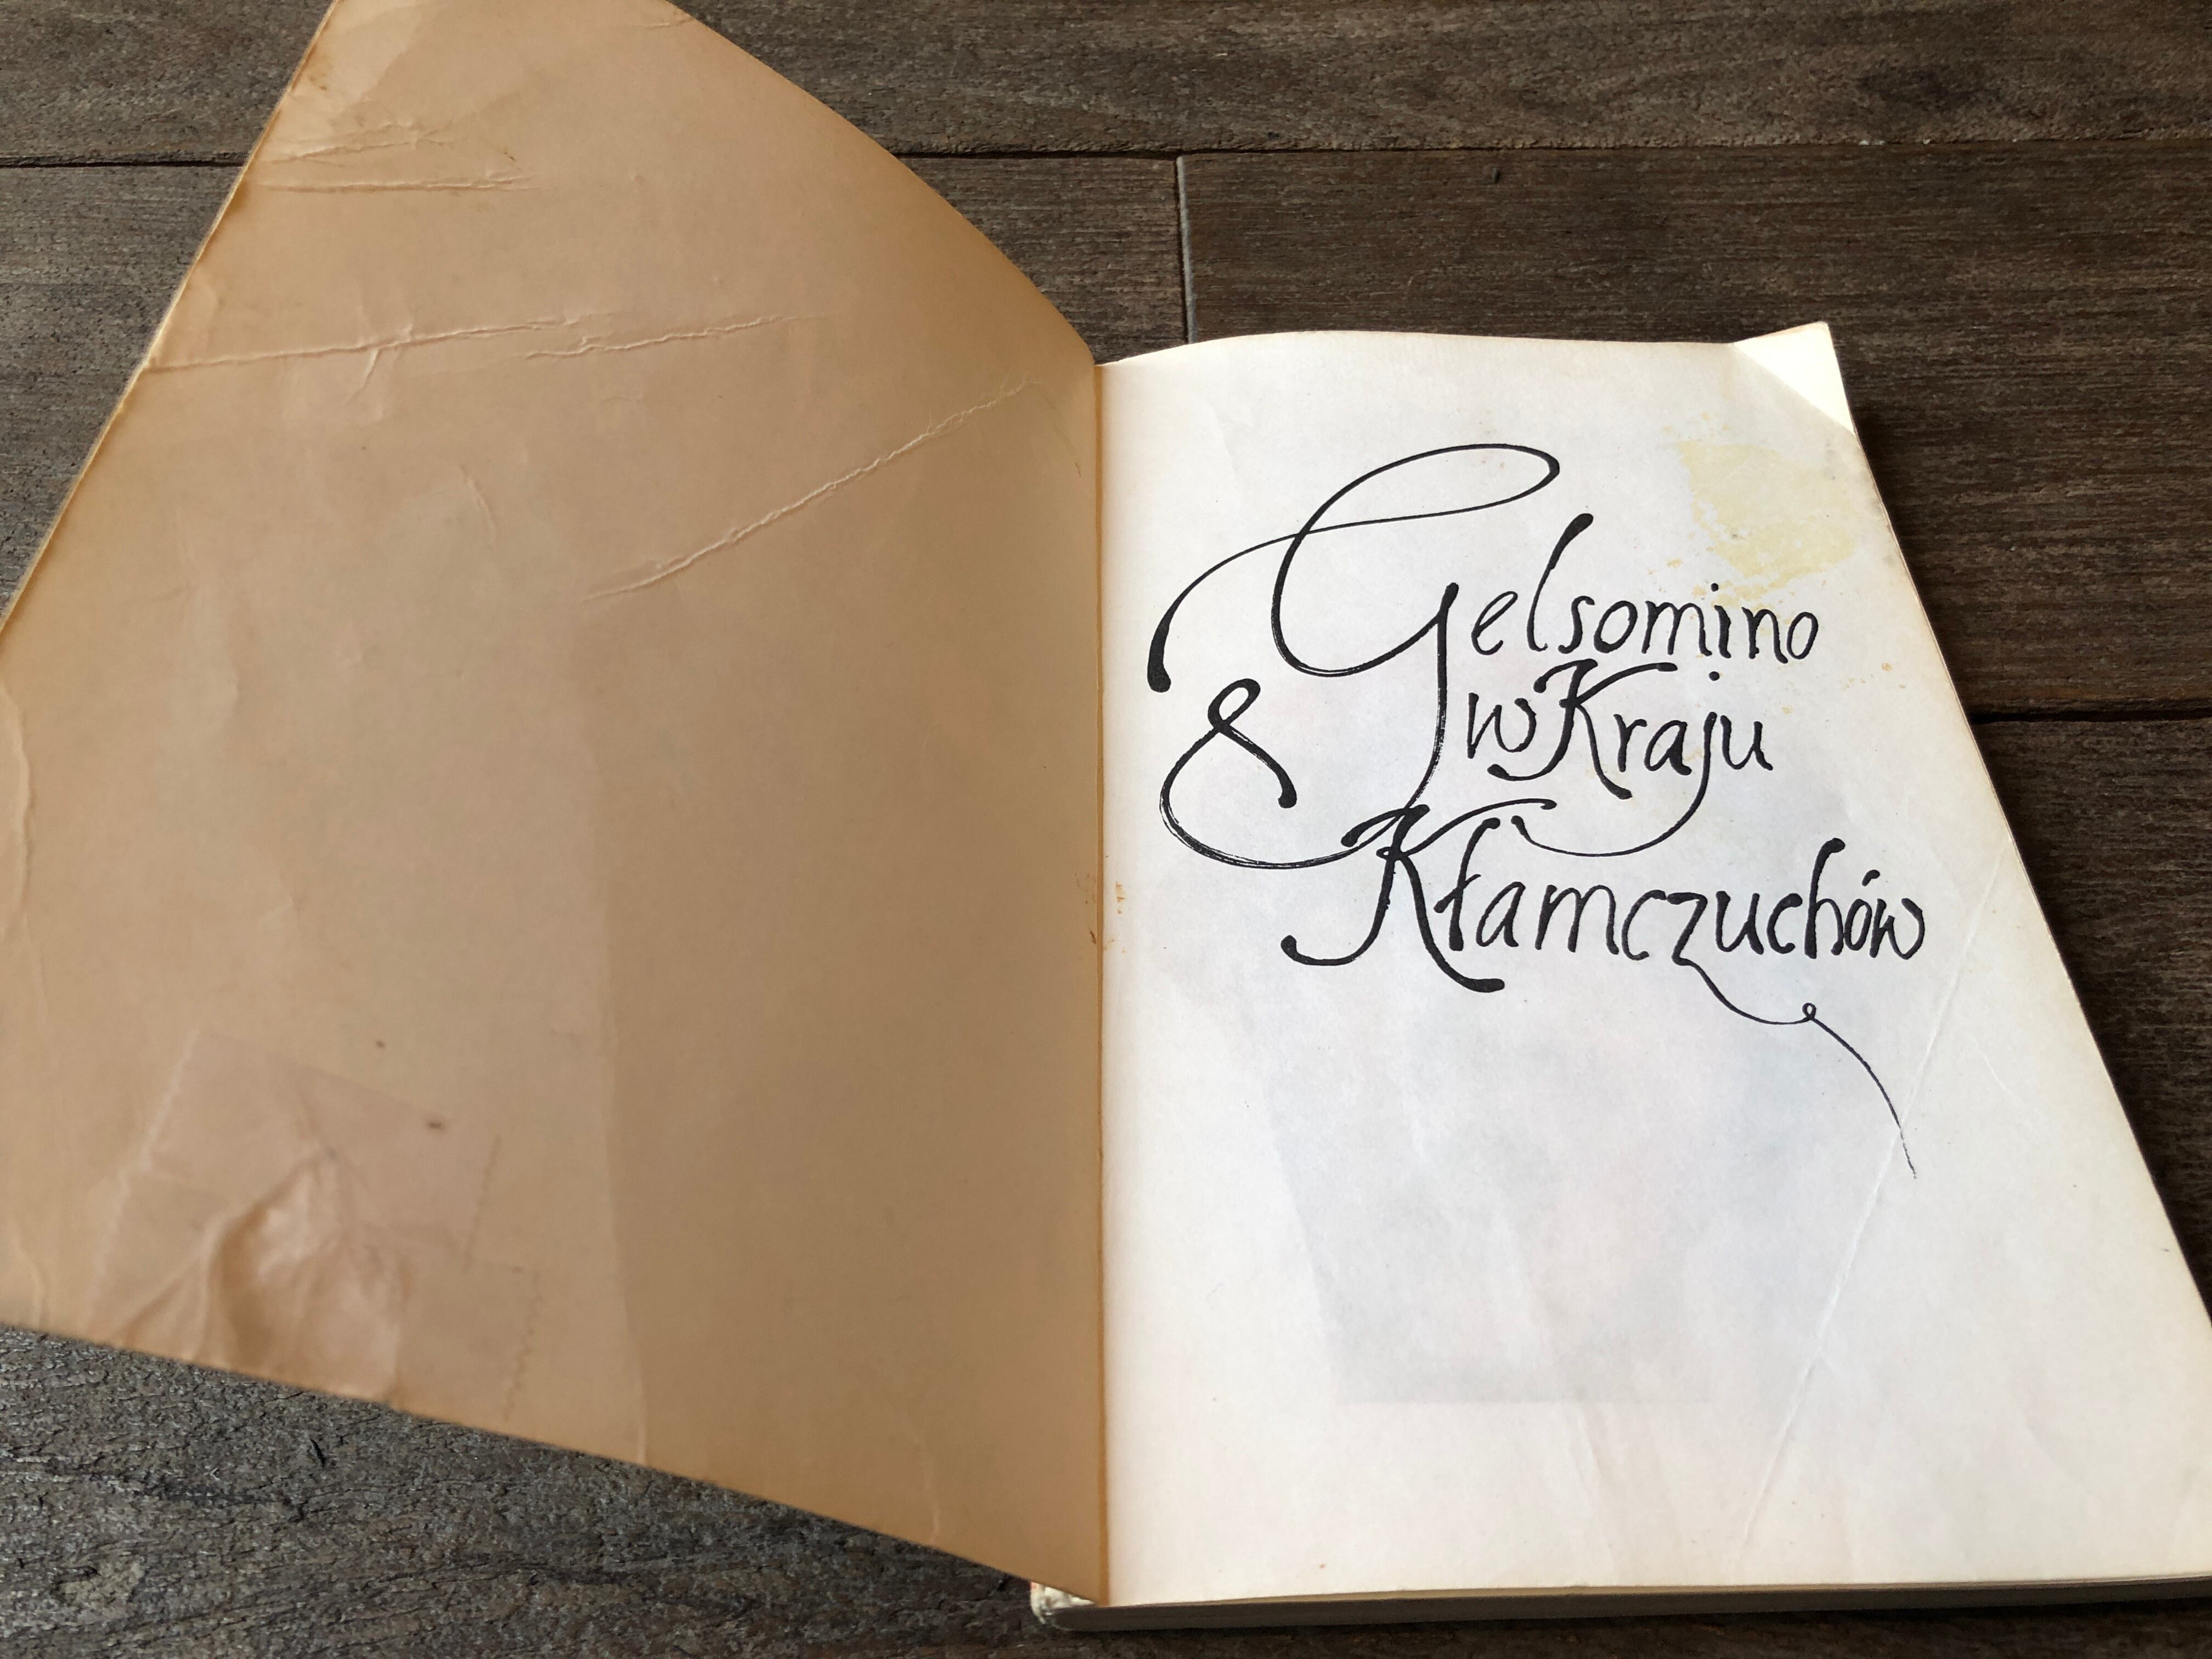 Gelsomino
w Kraju
Kłamczuchów